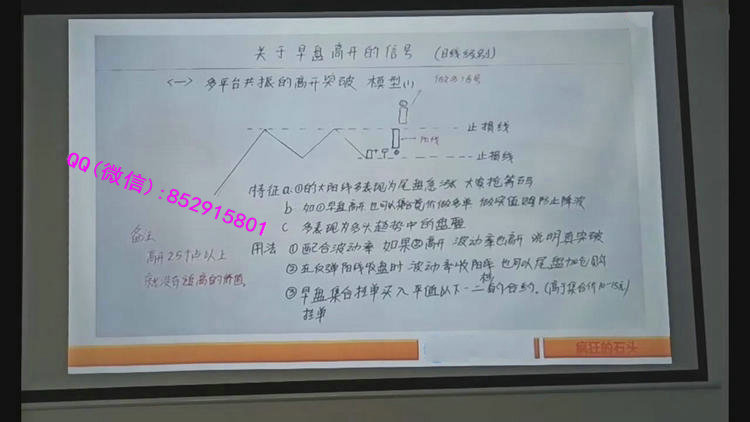 关于早盘高开的信号 (日线级别)
<一> 多平台共振的高开突破 模型(1)
止损线
阳线
止损线
QQ(微信):852915801
特征 a.①的大阳线多表现为尾盘急涨 大资抢筹码
b 如②早盘高开也可以集合竞价做多率
c 多表现为多头趋势中的盘整
备注
高开25个点以上
就没有追高的价值。
用法 ①配合波动率 如果②高开 波动率也高 说明真突破
②在反弹阳线收盘时 波动率收阳线 也可以尾盘加仓购
③早盘集合挂单买入平值以下一二档的合约。(高于集合价10-15元)
挂单
疯狂的石头